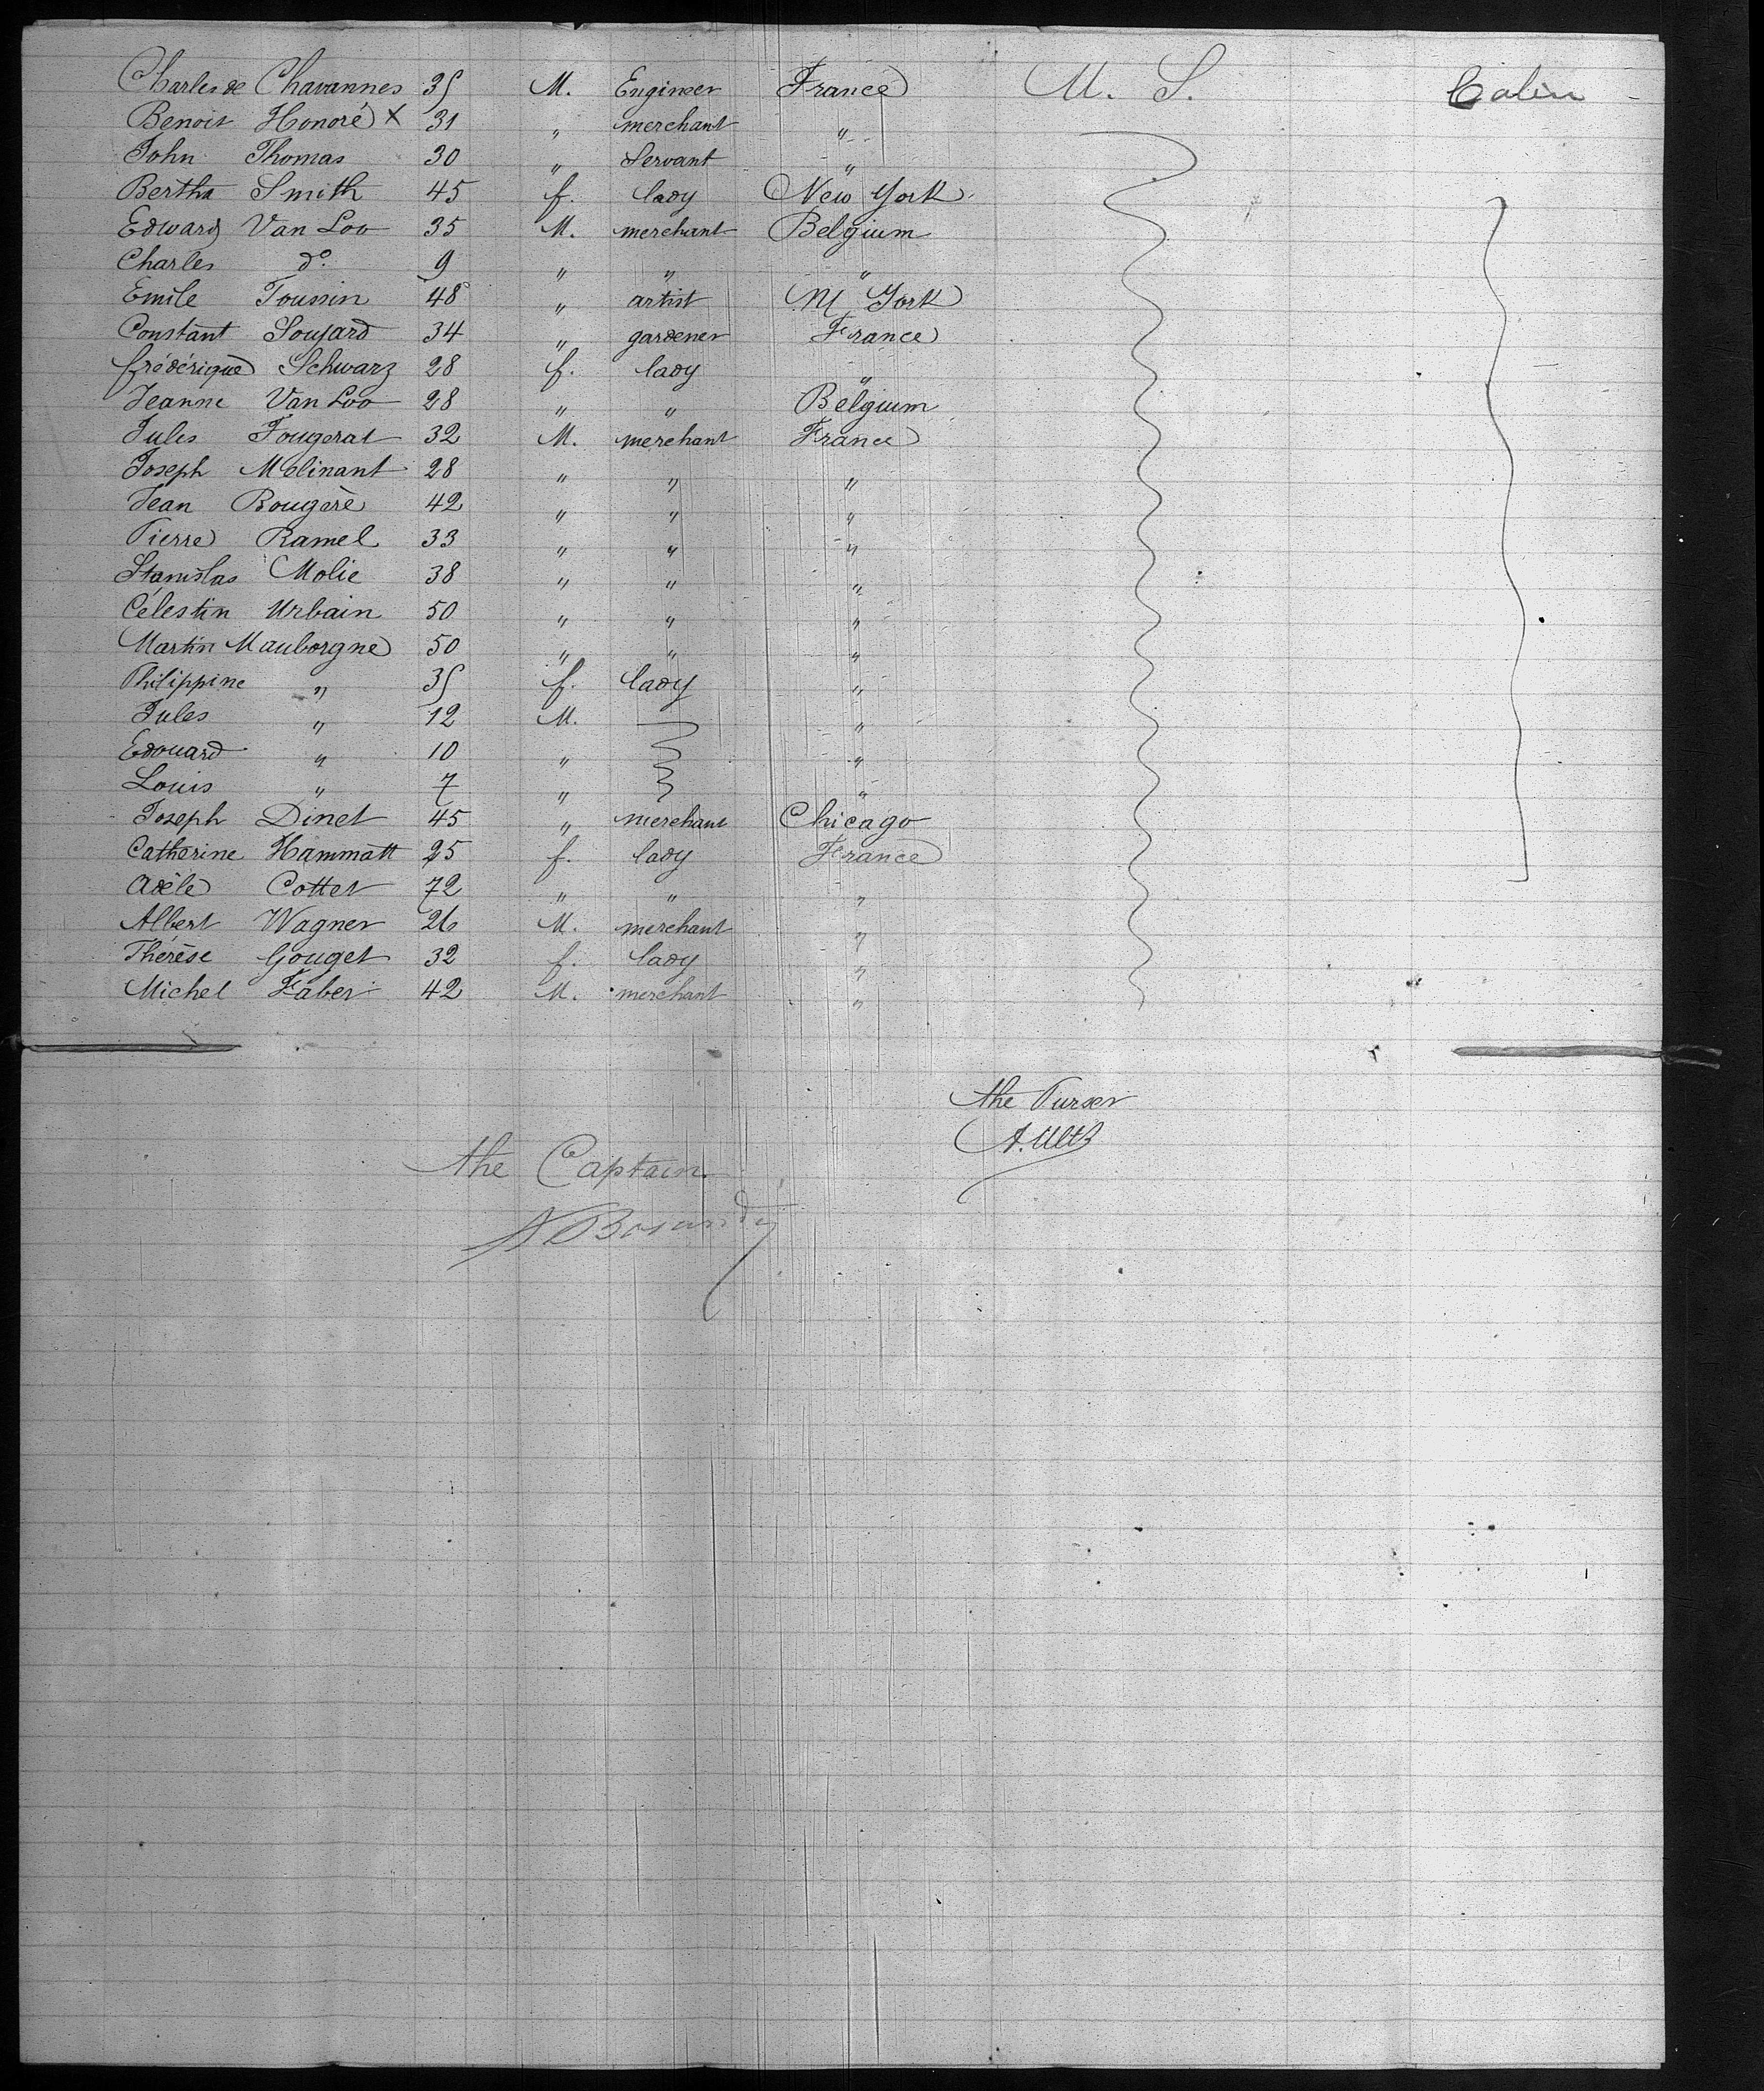 Charles de Chavannes 35 M. Engineer France U. S. Cabin
Benoit Honoré X 31 " merchant "
John Thomas 30 " Servant "
Bertha Smith 45 f. lady New York
Edward Van Loo 35 M. merchant Belgium
Charles do. 9 " " "
Emile Toussin 48 " artist N York
Constant Soujard 34 " gardener France
frédérique Schwarz 28 f. lady "
Jeanne Van Loo 28 " " Belgium
Jules Fougerat 32 M. merchant France
Joseph Melinant 28 " " "
Jean Bougerè 42 " " "
Pierre Ramel 33 " " "
Stanislas Molie 38 " " "
Célestin Urbain 50 " " "
Martin Mauborgne 50 " " "
Philippine " 35 f. lady "
Jules " 12 M. "
Edouard " 10 " "
Louis " 7 " "
Joseph Dinet 45 " merchant Chicago
Catherine Hammatt 25 f. lady France
Adèle Cottet 72 " " "
Albert Wagner 26 M. merchant "
Thérèse Gouget 32 f. lady "
Michel Faber 42 M. merchant "
the Purser
the Captain